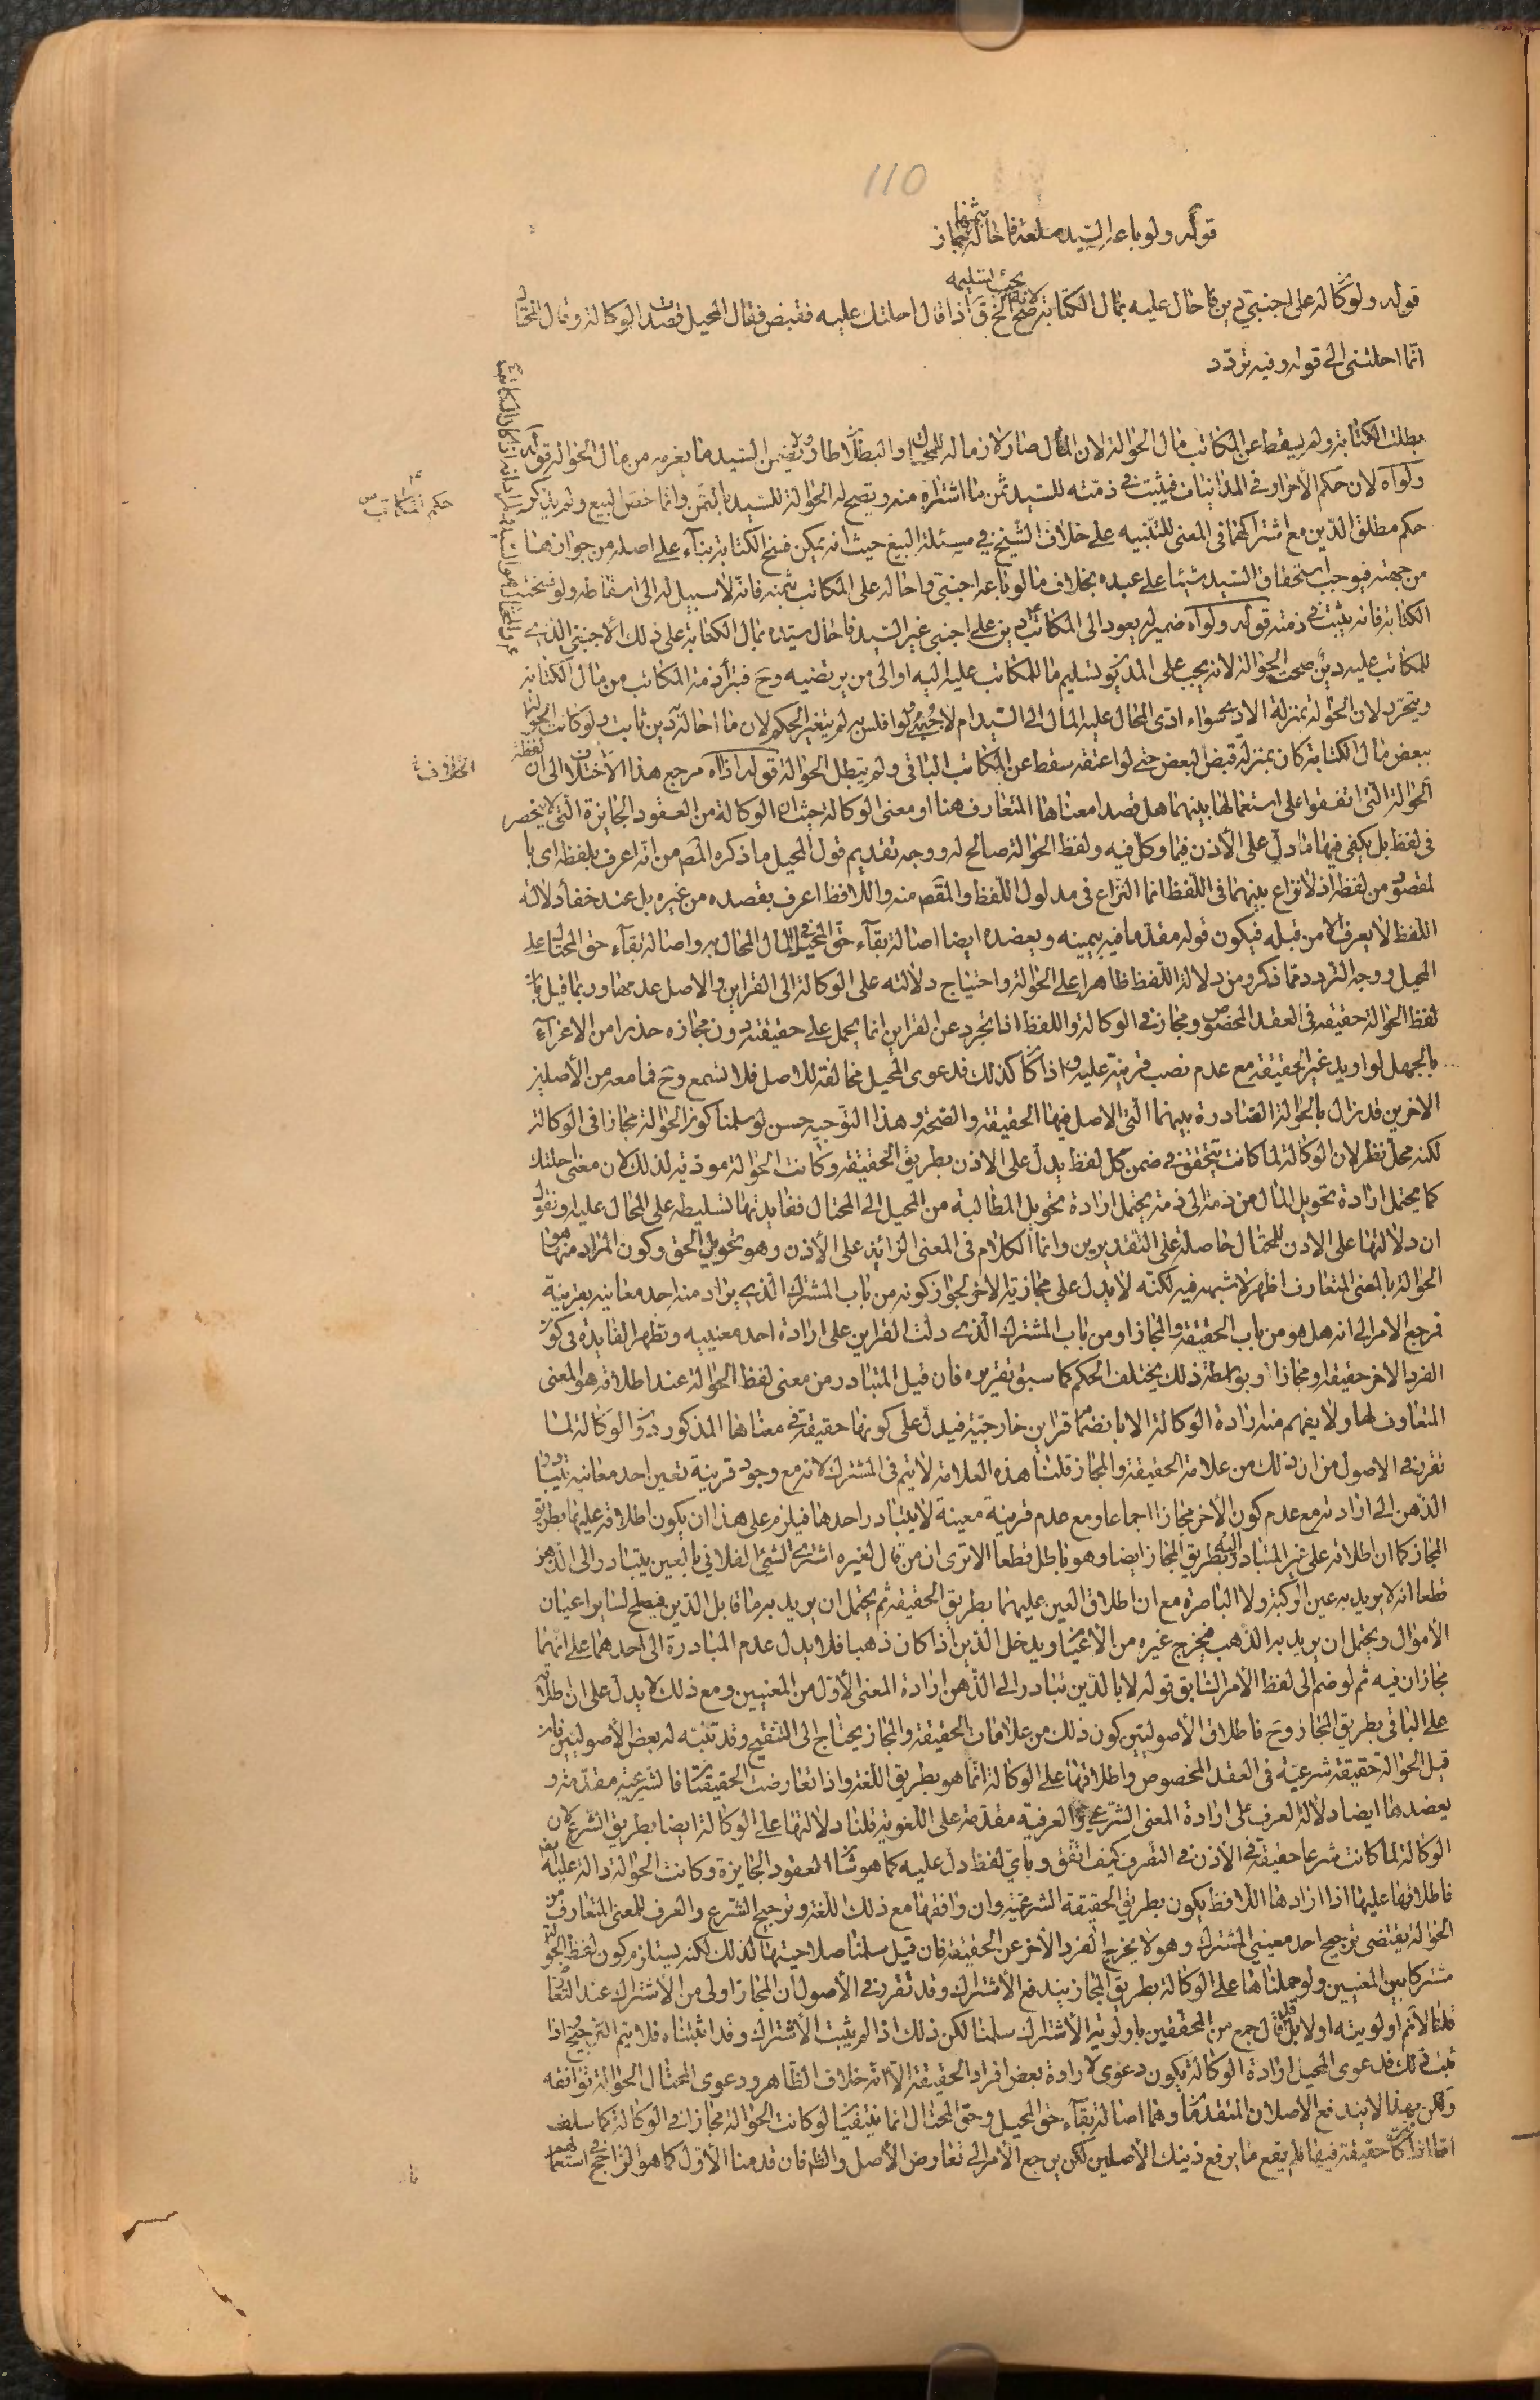 110
قوله ولو باعه السيد سلعة فاحاله بثمنها جاز
قوله ولو كان له على اجنبي دين فاحال عليه بمال الكتابة صح لانه يجب تسليمه الخ ق اذا قال احلتك عليه فقبض فقال المحيل قصدت الوكالة وقال المحتال
انما احلتنى الى قوله وفيه تردد
بطلت الكتابة ولم يسقط عن المكاتب مال الحوالة لان المال صار لازما له للمحتال ولا يضمن السيد ما يغرمه من مال الحوالة قوله
ولو اه لان حكمه حكم الأحرار فى المداينات فيثبت فى ذمته للسيد ثمن ما اشتراه منه ويصح له الحوالة للسيد بالثمن وانما خص البيع ولم يذكر
حكم المكاتب
حكم مطلق الدين مع اشتراكهما فى المعنى للتنبيه على خلاف الشيخ فى مسئلة البيع حيث انه يمكن فسخ الكتابة بناء على اصله من جوازها
من جهته فيوجب استحقاق السيد شيئا على عبده بخلاف ما لو باعه اجنبي واحاله على المكاتب بثمنه فانه لا سبيل له الى اسقاطه ولو فسخت
الكتابة فانه يثبت فى ذمته قوله ولو اه ضمير له يعود الى المكاتب دين على اجنبي غير السيد فاحال سيده بمال الكتابة على ذلك الأجنبي الذى
للمكاتب عليه دين صحت الحوالة لانه يجب على المديون تسليم ما للمكاتب عليه اليه او الى من يرتضيه وح فتبرأ ذمة المكاتب من مال الكتابة
ويتحرر لان الحوالة بمنزلة الأداء سواء ادى المحال عليه المال الى السيد ام لا حتى لو افلس به لم يتغير الحكم لان ما احاله دين ثابت ولو كانت الحوالة
ببعض مال الكتابة كان بمنزلة قبض البعض حتى لو اعتقه سقط عن المكاتب الباقى ولم تبطل الحوالة قوله اذا اه مرجع هذا الأختلاف الى ان لفظة
الحوالة التى اتفقوا على استعمالها بينهما هل قصدا معناها المتعارف هنا او معنى الوكالة حيث ان الوكالة من العقود الجايزة التى لا تنحصر
فى لفظ بل يكفى فيها ما دل على الأذن فيما وكل فيه ولفظ الحوالة صالح له ووجه تقديم قول المحيل ما ذكره المص من انه اعرف بلفظه اى با
لمقصود من لفظه اذ لا نزاع بينهما فى اللفظ انما النزاع فى مدلول اللفظ والمقص منه واللافظ اعرف بقصده من غيره بل عند خفاء دلالة
اللفظ لا يعرف الا من قبله فيكون قوله مقدما فيه بيمينه ويعضده ايضا اصالة بقاء حق المحيل فى المال المحال به واصالة بقاء حق المحتال على
المحيل ووجه التردد مما ذكر ومن دلالة اللفظ ظاهرا على الحوالة واحتياج دلالته على الوكالة الى القراين والاصل عدمها وربما قيل بان
لفظ الحوالة حقيقة فى العقد المخصوص ومجاز فى الوكالة واللفظ اذا تجرد عن القراين انما يحمل على حقيقته دون مجازه حذرا من الاغراء
بالجهل لو اريد غير الحقيقة مع عدم نصب قرينة عليه واذا كان كذلك فدعوى المحيل مخالفة للاصل فلا تسمع وح فما معه من الأصلين
الاخرين قد زال بالحوالة الصادرة بينهما التى الاصل فيها الحقيقة والصحة وهذا التوجيه حسن لو سلمنا كون الحوالة مجازا فى الوكالة
لكنه محل نظر لان الوكالة لما كانت يتحقق فى ضمن كل لفظ يدل على الاذن بطريق الحقيقة وكانت الحوالة مؤدية لذلك لان معنى احلتك
كما يحتمل ارادة تحويل المال من ذمة الى ذمة يحتمل ارادة تحويل المطالبة من المحيل الى المحتال فغايتها تسليطه على المحال عليه ونقول
ان دلالتها على الاذن للمحتال حاصلة على التقديرين وانما الكلام فى المعنى الزائد على الأذن وهو تحويل الحق وكون المراد منها هو
الحوالة بالمعنى المتعارف اظهر لا شبهة فيه لكنه لا يدل على مجازية الاخر لجواز كونه من باب المشترك الذى يراد منه احد معانيه بقرينة
فرجع الامر الى انه هل هو من باب الحقيقة والمجاز او من باب المشترك الذى دلت القراين على ارادة احد معنييه وتظهر الفايدة فى كون
الفرد الاخر حقيقة او مجازا وبواسطة ذلك يختلف الحكم كما سبق تقريره فان قيل المتبادر من معنى لفظ الحوالة عند اطلاقه هو المعنى
المتعارف لها ولا يفهم منه ارادة الوكالة الا بانضمام قراين خارجية فيدل على كونها حقيقة فى معناها المذكور دون الوكالة لما
تقرر فى الاصول من ان ذلك من علامة الحقيقة والمجاز قلنا هذه العلامة لا يتم فى المشترك لانه مع وجود قرينة تعين احد معانيه يتبادر
الذهن الى ارادته مع عدم كون الأخر مجازا اجماعا ومع عدم قرينة معينة لا يتبادر احدها فيلزم على هذا ان يكون اطلاقه عليها بطريق
المجاز كما ان اطلاقه على غير المتبادر اليه بطريق المجاز ايضا وهو باطل قطعا الا ترى ان من قال لغيره اشتر الشئ الفلانى بالعين يتبادر الى الذهن
قطعا انه لا يريد به عين الركبة ولا الباصرة مع ان اطلاق العين عليهما بطريق الحقيقة ثم يحتمل ان يريد به ما قابل الدين فيصلح لساير اعيان
الأموال ويحتمل ان يريد به الذهب فيخرج غيره من الأعيان ويدخل الدين اذا كان ذهبا فلا يدل عدم المبادرة الى احدهما على انهما
مجازان فيه ثم لو ضم الى لفظ الأمر السابق قوله لا بالدين تبادر الى الذهن ارادة المعنى الأول من المعنيين ومع ذلك لا يدل على ان اطلاقه
على الباقى بطريق المجاز وح فاطلاق الأصوليين كون ذلك من علامات الحقيقة والمجاز يحتاج الى التنقيح وقد تنبه له بعض الأصوليين فان
قيل الحوالة حقيقة شرعية فى العقد المخصوص واطلاقها على الوكالة انما هو بطريق اللغة واذا تعارضت الحقيقتان فالشرعية مقدمة و
يعضدها ايضا دلالة العرف على ارادة المعنى الشرعى والعرفية مقدمة على اللغوية قلنا دلالتها على الوكالة ايضا بطريق الشرع لان
الوكالة لما كانت شرعا حقيقة فى الأذن فى التصرف كيف اتفق وباى لفظ دل عليه كما هو شأن العقود الجايزة وكانت الحوالة دالة عليه
فاطلاقها عليها اذا ارادها اللافظ يكون بطريق الحقيقة الشرعية وان وافقها مع ذلك اللغة وترجيح الشرع والعرف للمعنى المتعارف من
الحوالة يقتضى ترجيح احد معنيي المشترك وهو لا يخرج الفرد الأخر عن الحقيقة فان قيل سلمنا صلاحيتها لذلك لكنه يستلزم كون لفظ الحوالة
مشتركا بين المعنيين ولو حملناها على الوكالة بطريق المجاز يندفع الأشتراك وقد تقرر فى الأصول ان المجاز اولى من الأشتراك عند التعارض
قلنا لا نم اولويته اولا بل قد قال جمع من المحققين باولوية الأشتراك سلمنا لكن ذلك اذا لم يثبت الأشتراك وقد اثبتناه فلا يتم الترجيح اذا
ثبت ذلك فدعوى المحيل ارادة الوكالة يكون دعوى لارادة بعض افراد الحقيقة الا انه خلاف الظاهر ودعوى المحتال الحوالة توافقه
ولكن بهذا لا يندفع الاصلان المتقدمان وهما اصالة بقاء حق المحيل وحق المحتال انما ينتفيان لو كانت الحوالة مجازا فى الوكالة كما سلف
اما اذا كانت حقيقة فيها فلم يقع ما يرفع ذينك الأصلين لكن يرجع الأمر الى تعارض الأصل والظ فان قدمنا الأول كما هو الراجح فى استعمالهم